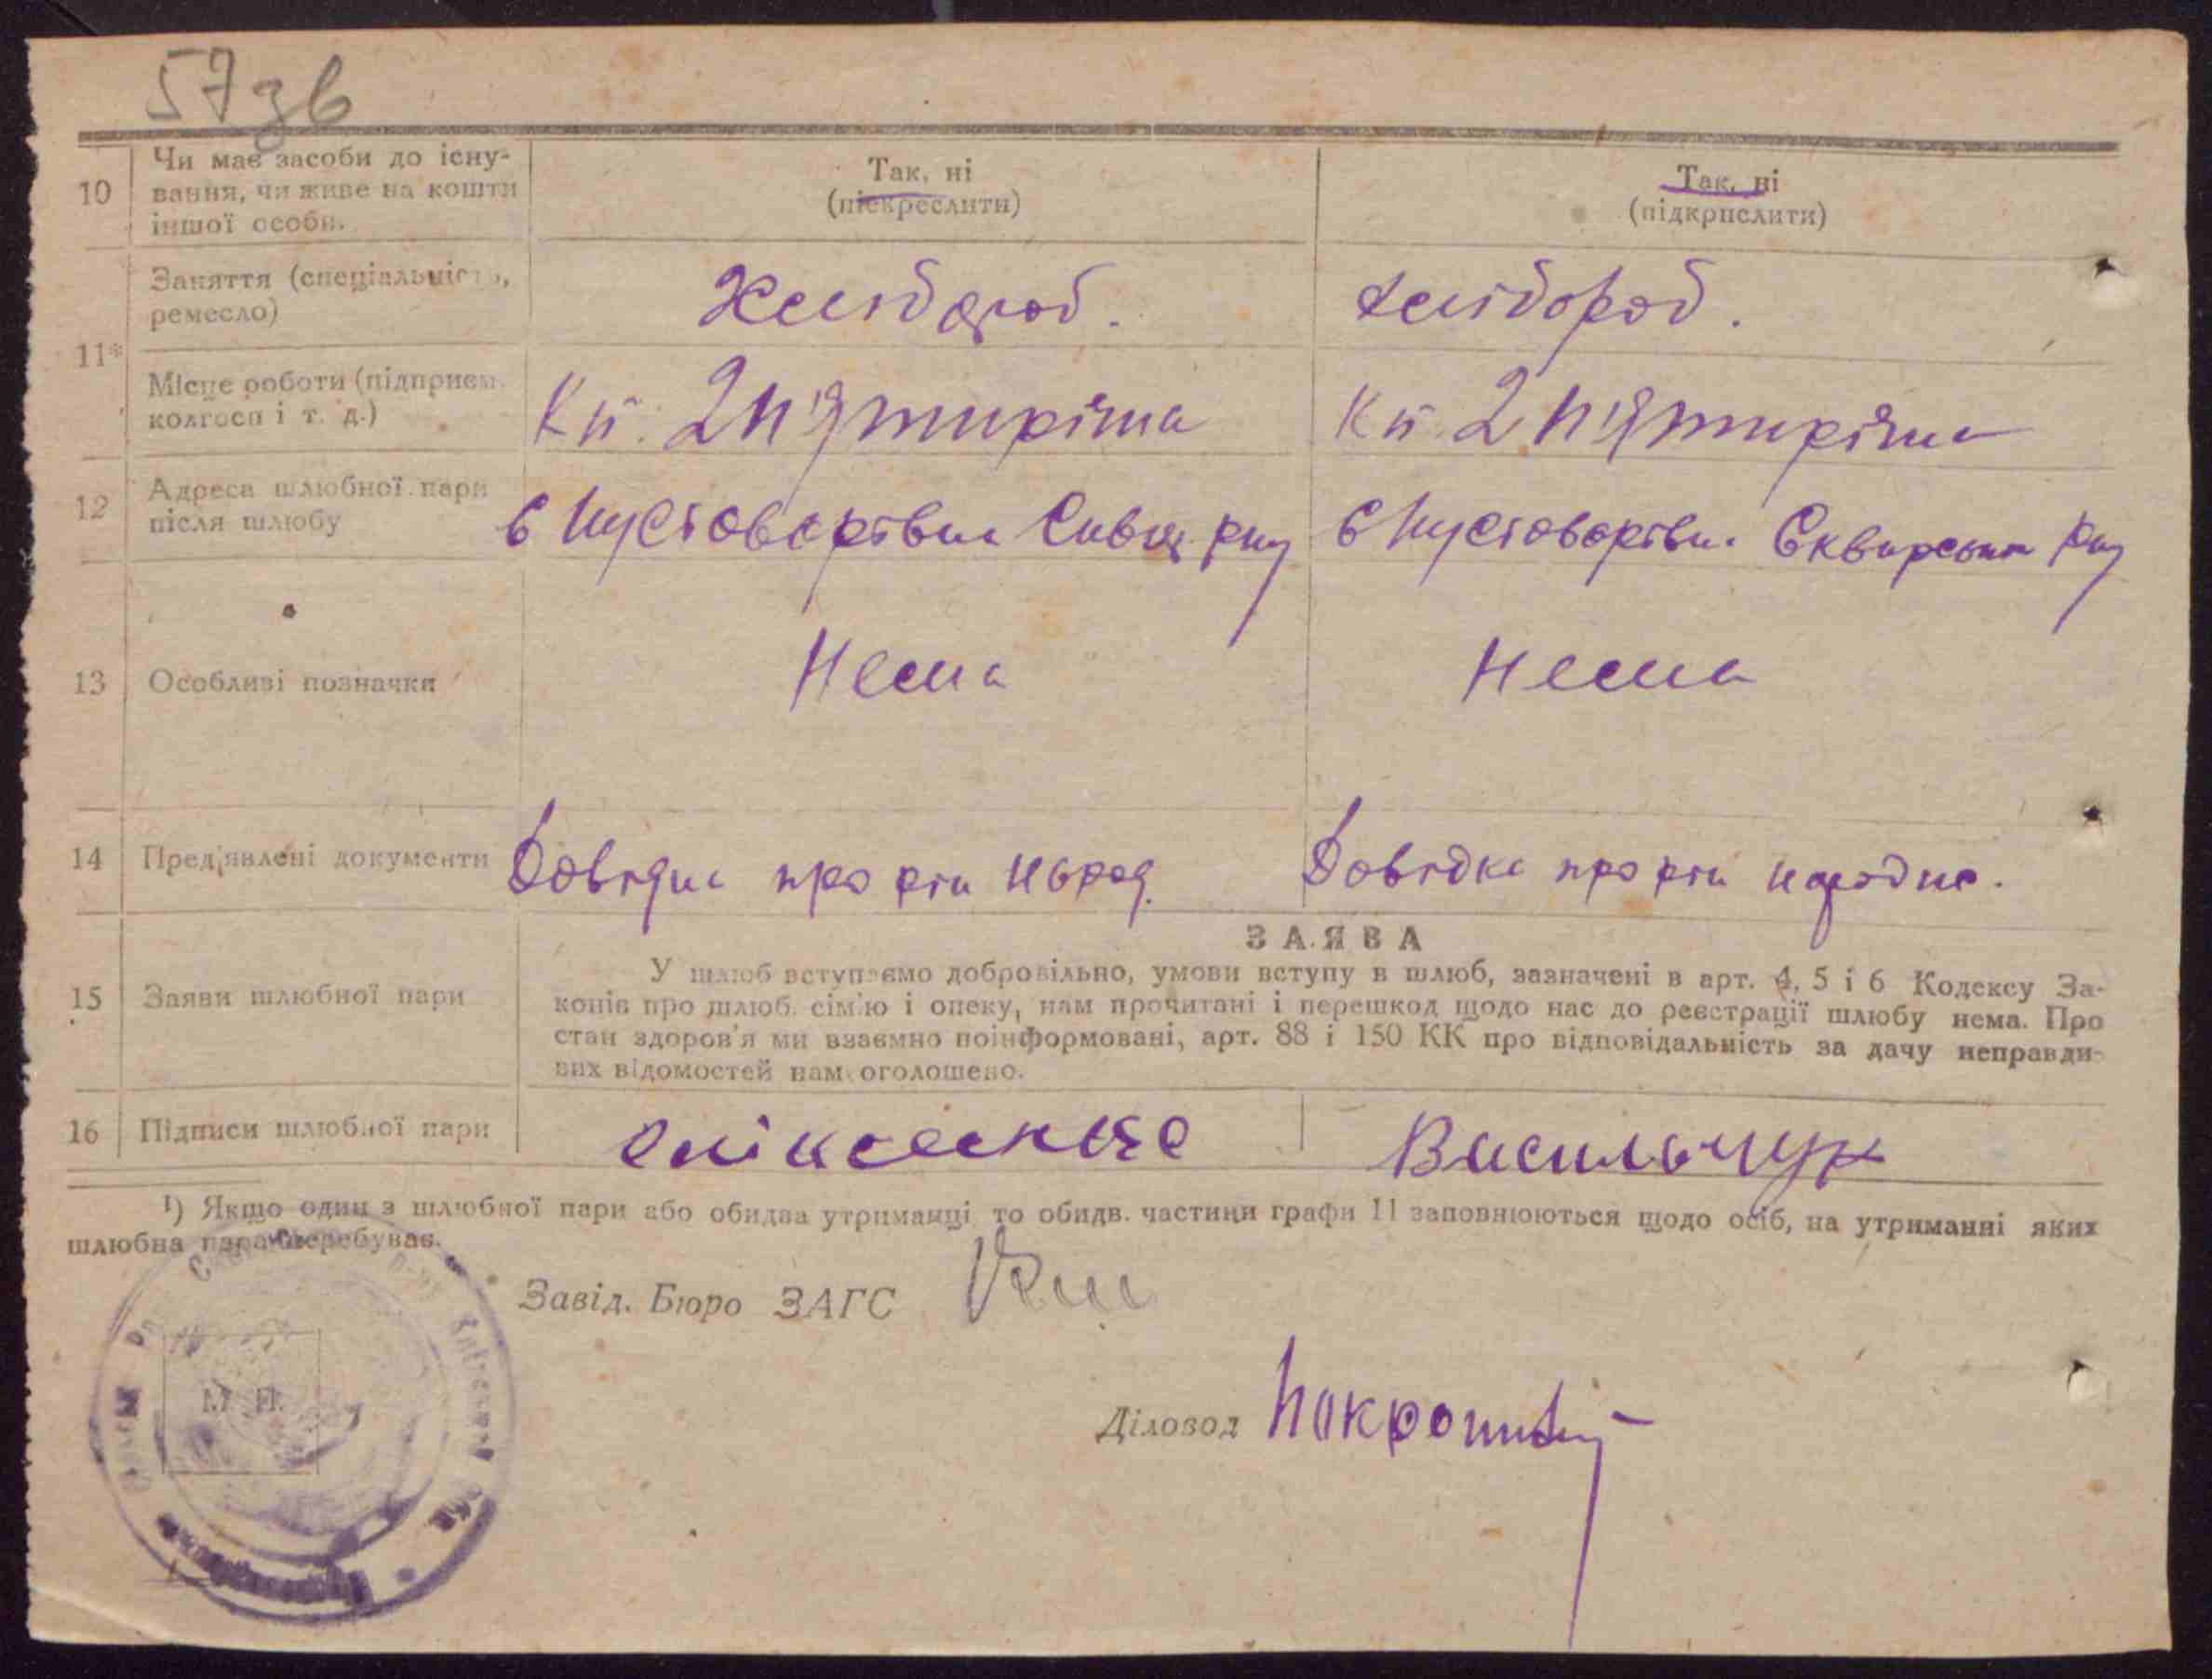 57 зв
10
Чи має засоби до існу-
вання, чи живе на кошти
іншої особи.
Так, ні
(піскреслити)
Так, ні
(підкрислити)
11*
Заняття (спеціальність,
ремесло)
Хлібороб.
Хлібороб.
Місце роботи (підприєм.
колгосп і т. д.)
Кп. 2 п'ятирічка
Кп. 2 п'ятирічка
12
Адреса шлюбної пари
після шлюбу
с Пустоварівка Сквир. р-ну
с Пустоварівка Сквирськ р-ну
13
Особливі позначки
Нема
Нема
14
Пред'явлені документи
Довідка про рік народ.
Довідка про рік народже.
15
Заяви шлюбної пари
ЗАЯВА
У шлюб вступаємо добровільно, умови вступу в шлюб, зазначені в арт. 4, 5 і 6 Кодексу За-
конів про шлюб, сім'ю і опеку, нам прочитані і перешкод щодо нас до реєстрації шлюбу нема. Про
стан здоров'я ми взаємно поінформовані, арт. 88 і 150 КК про відповідальність за дачу неправди-
вих відомостей нам оголошено.
16
Підписи шлюбної пари
Васильчук
¹) Якщо один з шлюбної пари або обидва утриманці то обидв. частини графи 11 заповнюються щодо осіб, на утриманні яких
шлюбна пара перебуває.
Завід. Бюро ЗАГС
М. П.
Діловод